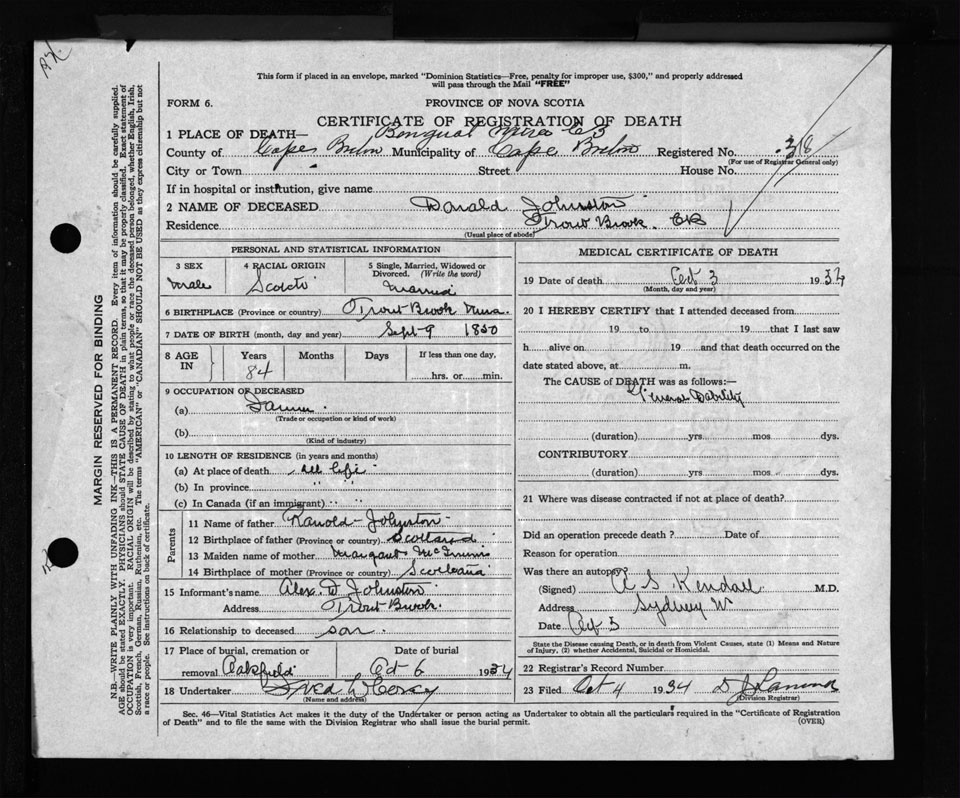 This form if placed in an envelope, marked "Dominion Statistics—Free, penalty for improper use, $300," and properly addressed
will pass through the Mail "FREE"
FORM 6.
PROVINCE OF NOVA SCOTIA
CERTIFICATE OF REGISTRATION OF DEATH
1 PLACE OF DEATH—
County of Cape Breton Municipality of Cape Breton Registered No. 318
(For use of Registrar General only)
City or Town Street House No.
If in hospital or institution, give name
2 NAME OF DECEASED Donald Johnston
Residence Trout Brook. CB
(Usual place of abode)
PERSONAL AND STATISTICAL INFORMATION
3 SEX
Male
4 RACIAL ORIGIN
Scotch
5 Single, Married, Widowed or
Divorced. (Write the word)
Married
6 BIRTHPLACE (Province or country) Trout Brook Mira.
7 DATE OF BIRTH (month, day and year) Sept 9 1850
8 AGE IN
Years
84
Months
Days
If less than one day,
hrs. or min.
9 OCCUPATION OF DECEASED
(a) Farmer
(Trade or occupation or kind of work)
(b)
(Kind of industry)
10 LENGTH OF RESIDENCE (in years and months)
(a) At place of death all life
(b) In province " "
(c) In Canada (if an immigrant) " "
Parents
11 Name of father Ranold Johnston
12 Birthplace of father (Province or country) Scotland
13 Maiden name of mother Margaret McInnis
14 Birthplace of mother (Province or country) Scotland
15 Informant's name Alex. D Johnston
Address Trout Brook.
16 Relationship to deceased son.
17 Place of burial, cremation or
removal Oakfield
Date of burial
Oct 6 1934
18 Undertaker Fred W Corey
(Name and address)
MEDICAL CERTIFICATE OF DEATH
19 Date of death Oct 3 1934
(Month, day and year)
20 I HEREBY CERTIFY that I attended deceased from
19 to 19 that I last saw
h alive on 19 and that death occurred on the
date stated above, at m.
The CAUSE of DEATH was as follows:—
General Debility
(duration) yrs mos dys.
CONTRIBUTORY
(duration) yrs. mos dys.
21 Where was disease contracted if not at place of death?
Did an operation precede death? Date of
Reason for operation
Was there an autopsy?
(Signed) A S Kendall M.D.
Address Sydney
Date Oct 5
State the Disease causing Death, or in death from Violent Causes, state (1) Means and Nature
of Injury, (2) whether Accidental, Suicidal or Homicidal.
22 Registrar's Record Number
23 Filed Oct 4 1934
(Division Registrar)
Sec. 46—Vital Statistics Act makes it the duty of the Undertaker or person acting as Undertaker to obtain all the particulars required in the "Certificate of Registration
of Death" and to file the same with the Division Registrar who shall issue the burial permit.
(OVER)
MARGIN RESERVED FOR BINDING
N.B.—WRITE PLAINLY WITH UNFADING INK—THIS IS A PERMANENT RECORD. Every item of information should be carefully supplied.
AGE should be stated EXACTLY. PHYSICIANS should STATE CAUSE OF DEATH in plain terms, so that it may be properly classified. Exact statement of
OCCUPATION is very important. RACIAL ORIGIN will be described by stating to what people or race the deceased person belonged, whether English, Irish,
Scottish, French, German, Russian, Ruthenian, etc. The terms "AMERICAN" or "CANADIAN" SHOULD NOT BE USED as they express citizenship but not
a race or people. See instructions on back of certificate.